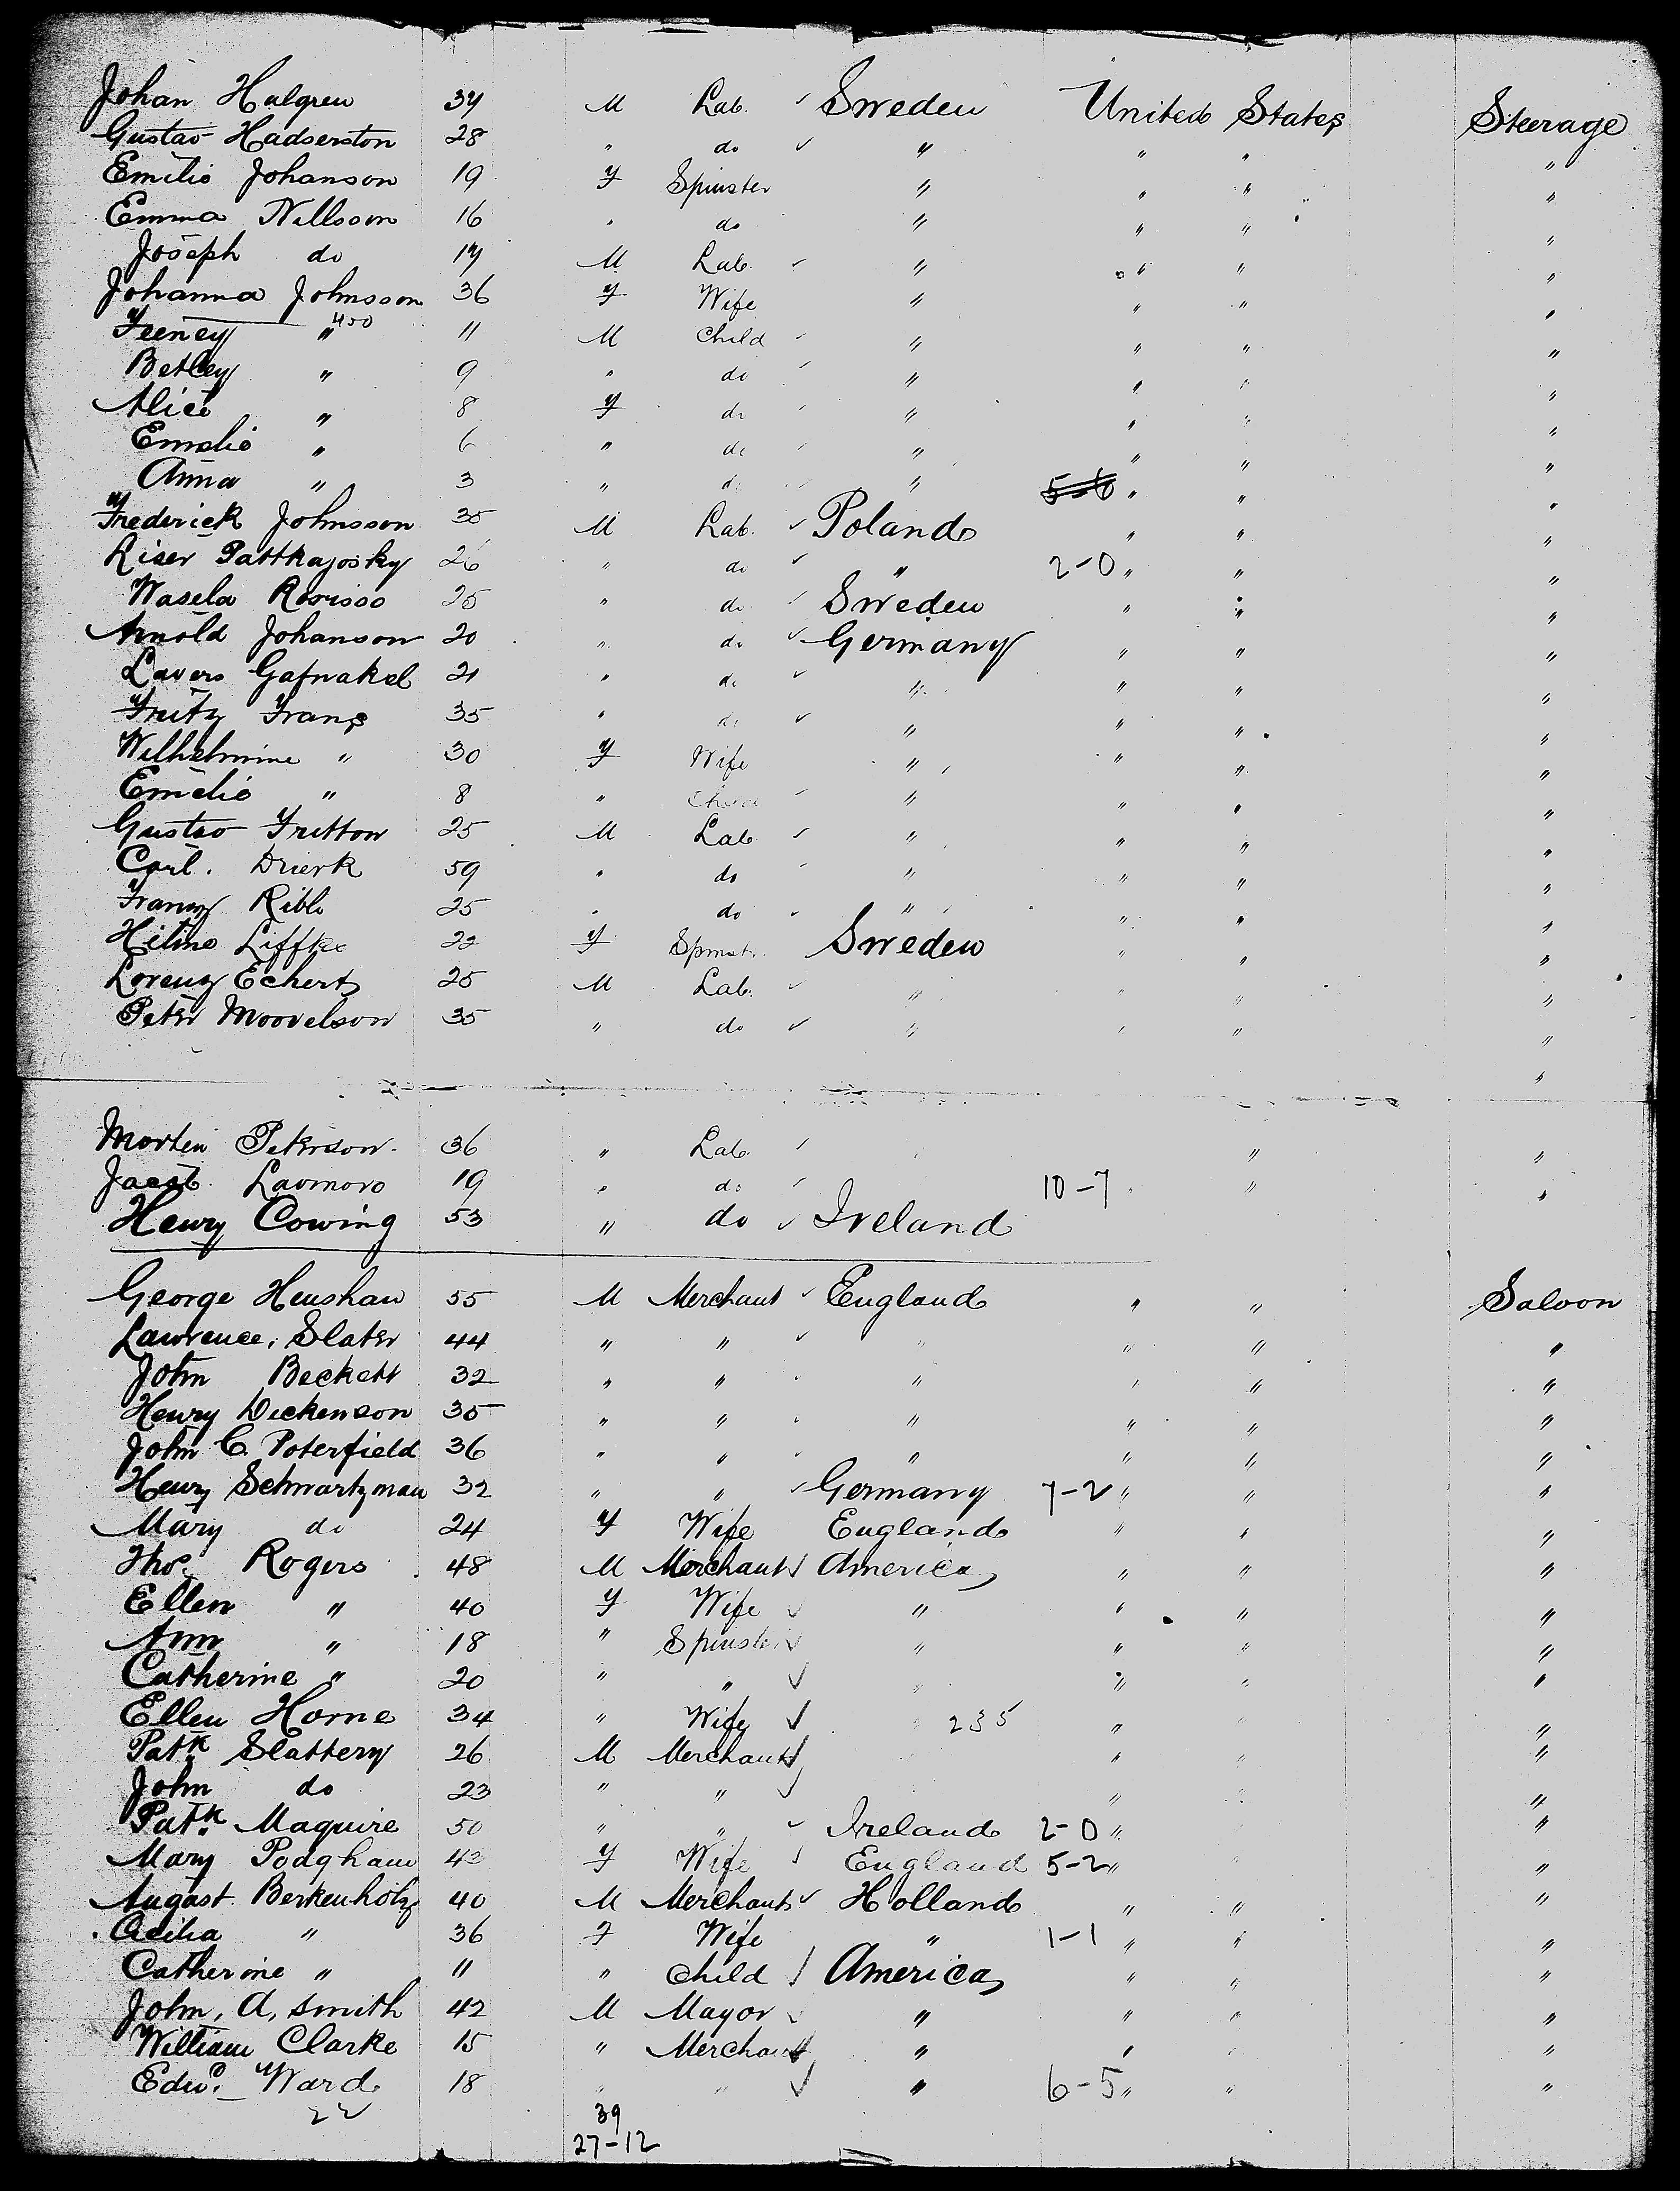 Johan Halgren 34 M Lab. ✓ Sweden United States Steerage
Gustav Hadserston 28 " do ✓ " " " "
Emilie Johanson 19 F Spinster " " " "
Emma Nillsson 16 " do " " " "
Joseph do 14 M Lab. ✓ " " " "
Johanna Johnsson 36 F Wife " " " "
Feeney " 450 11 M Child ✓ " " " "
Betley " 9 " do ✓ " " " "
Alice " 8 F do ✓ " " " "
Emelie " 6 " do ✓ " " " "
Anna " 3 " do " 5-6 " " "
Frederick Johnsson 35 M Lab. ✓ Poland " " "
26 " do ✓ " 2-0 " " "
Wasela 25 " do ✓ Sweden " " "
Arnold Johanson 20 " do ✓ Germany " " "
21 " do ✓ " " " "
Fritz Frans 35 " do ✓ " " " "
Wilhelmine " 30 F Wife " " " "
Emelie " 8 " Child ✓ " " " "
Gustav Fritton 25 M Lab. ✓ " " " "
Carl. Drierk 59 " do ✓ " " " "
Franz Ribb 25 " do ✓ " " " "
Liffke 22 F Spinst. Sweden " " "
Lorenz Echert 25 M Lab. ✓ " " " "
Peter Moovelson 35 " do ✓ " " " "
Morten Peterson 36 " Lab. ✓ " "
Jacob 19 " do ✓ 10-7 " " "
Henry Cowing 53 " do ✓ Ireland
George Henshaw 55 M Merchant ✓ England " " Saloon
Lawrence Slater 44 " " ✓ " " " "
John Beckett 32 " " ✓ " " " "
Henry Dickenson 35 " " ✓ " " " "
John C. Poterfield 36 " " ✓ " " " "
Henry Schwartzman 32 " " ✓ Germany 7-2 " " "
Mary do 24 F Wife England " " "
Thos. Rogers 48 M Merchant ✓ America " " "
Ellen " 40 F Wife ✓ " " " "
Ann " 18 " Spinster ✓ " " " "
Catherine " 20 " " ✓ " " " "
Ellen Horne 34 " Wife ✓ " 235 " " "
Patk. Slattery 26 M Merchant ✓ " " "
John do 23 " " ✓ " " "
Patk. Maguire 50 " " ✓ Ireland 2-0 " "
Mary Podgham 42 F Wife ✓ England 5-2 " "
August Berkenholz 40 M Merchant ✓ Holland " " "
Cecilia " 36 F Wife " 1-1 " " "
Catherine " 11 " Child ✓ America " " "
John, A, Smith 42 M Mayor ✓ " " " "
William Clarke 15 " Merchant ✓ " " " "
Edwd. Ward 18 " " ✓ " 6-5 " " "
22 39
27-12